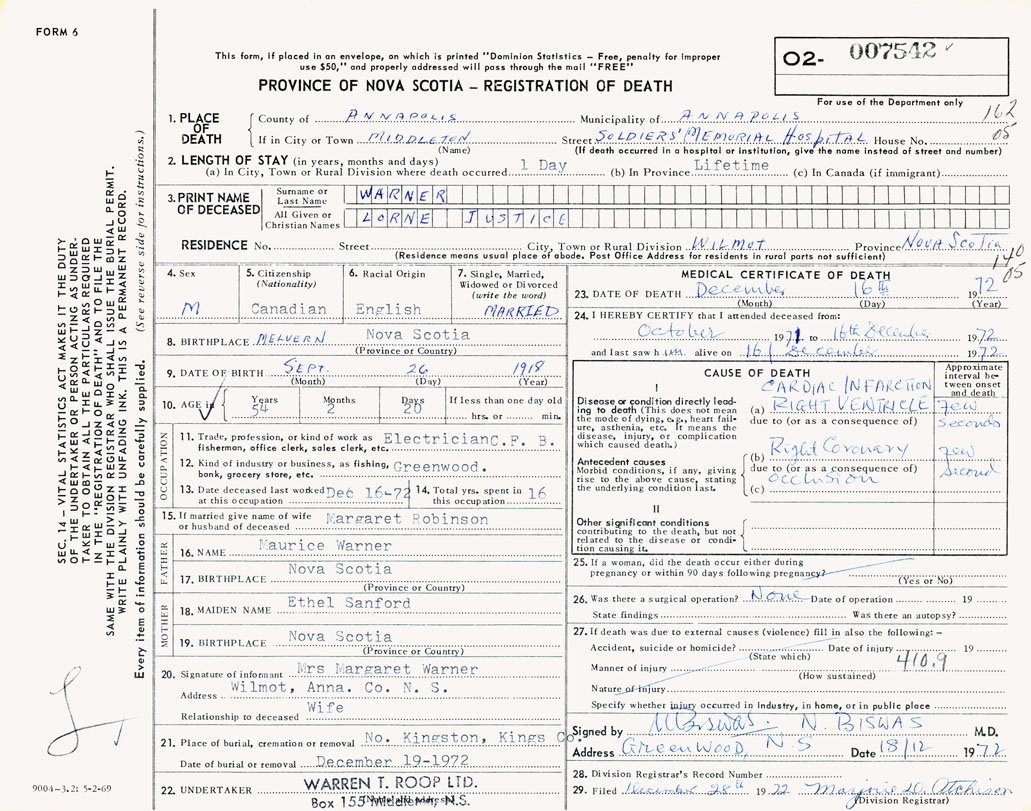 FORM 6
This form, if placed in an envelope, on which is printed "Dominion Statistics – Free, penalty for improper
use $50," and properly addressed will pass through the mail "FREE"
O2- 007542
PROVINCE OF NOVA SCOTIA – REGISTRATION OF DEATH
For use of the Department only
162
05
1. PLACE OF DEATH
County of ANNAPOLIS Municipality of ANNAPOLIS
If in City or Town MIDDLETON Street SOLDIERS' MEMORIAL HOSPITAL House No.
(Name) (If death occurred in a hospital or institution, give the name instead of street and number)
2. LENGTH OF STAY (in years, months and days)
(a) In City, Town or Rural Division where death occurred 1 Day (b) In Province Lifetime (c) In Canada (if immigrant)
3. PRINT NAME OF DECEASED
Surname or Last Name WARNER
All Given or Christian Names LORNE JUSTICE
RESIDENCE No. Street City, Town or Rural Division WILMOT Province NOVA SCOTIA
(Residence means usual place of abode. Post Office Address for residents in rural parts not sufficient)
140
05
4. Sex
M
5. Citizenship
(Nationality)
Canadian
6. Racial Origin
English
7. Single, Married,
Widowed or Divorced
(write the word)
MARRIED
8. BIRTHPLACE MELVERN Nova Scotia
(Province or Country)
9. DATE OF BIRTH SEPT. 26 1918
(Month) (Day) (Year)
10. AGE in Years Months Days If less than one day old
54 2 20 hrs. or min.
OCCUPATION
11. Trade, profession, or kind of work as Electrician C.F. B.
fisherman, office clerk, sales clerk, etc.
12. Kind of industry or business, as fishing, Greenwood.
bank, grocery store, etc.
13. Date deceased last worked Dec 16-72 14. Total yrs. spent in 16
at this occupation this occupation
15. If married give name of wife Margaret Robinson
or husband of deceased
FATHER
16. NAME Maurice Warner
17. BIRTHPLACE Nova Scotia
(Province or Country)
MOTHER
18. MAIDEN NAME Ethel Sanford
19. BIRTHPLACE Nova Scotia
(Province or Country)
20. Signature of informant Mrs Margaret Warner
Address Wilmot, Anna. Co. N. S.
Relationship to deceased Wife
21. Place of burial, cremation or removal No. Kingston, Kings Co.
Date of burial or removal December 19-1972
22. UNDERTAKER WARREN T. ROOP LTD.
Box 155 Middleton, N.S.
MEDICAL CERTIFICATE OF DEATH
23. DATE OF DEATH December 16th 1972
(Month) (Day) (Year)
24. I HEREBY CERTIFY that I attended deceased from:
October 1971 to 16th December 1972
and last saw him alive on 16/ December 1972
CAUSE OF DEATH
Approximate interval between onset and death
I
CARDIAC INFARCTION
Disease or condition directly leading to death (This does not mean the mode of dying, e.g., heart failure, asthenia, etc. It means the disease, injury, or complication which caused death.)
(a) RIGHT VENTRICLE few seconds
due to (or as a consequence of)
Antecedent causes
Morbid conditions, if any, giving rise to the above cause, stating the underlying condition last.
(b) Right Coronary few second
due to (or as a consequence of)
occlusion
(c)
II
Other significant conditions
contributing to the death, but not
related to the disease or condition
causing it.
25. If a woman, did the death occur either during
pregnancy or within 90 days following pregnancy?
(Yes or No)
26. Was there a surgical operation? None Date of operation 19
State findings Was there an autopsy?
27. If death was due to external causes (violence) fill in also the following: –
Accident, suicide or homicide? Date of injury 19
(State which)
410.9
Manner of injury
(How sustained)
Nature of injury
Specify whether injury occurred in industry, in home, or in public place
Signed by N. BISWAS M.D.
Address GREENWOOD, N.S Date 18/12 1972
28. Division Registrar's Record Number
29. Filed December 28th 1972 Marjorie D. Atchison
(Division Registrar)
SEC. 14 – VITAL STATISTICS ACT MAKES IT THE DUTY
OF THE UNDERTAKER OR PERSON ACTING AS UNDER-
TAKER TO OBTAIN ALL THE PARTICULARS REQUIRED
IN THE "REGISTRATION OF DEATH" AND TO FILE THE
SAME WITH THE DIVISION REGISTRAR WHO SHALL ISSUE THE BURIAL PERMIT.
WRITE PLAINLY WITH UNFADING INK. THIS IS A PERMANENT RECORD.
Every item of information should be carefully supplied. (See reverse side for instructions.)
9004-3.2: 5-2-69